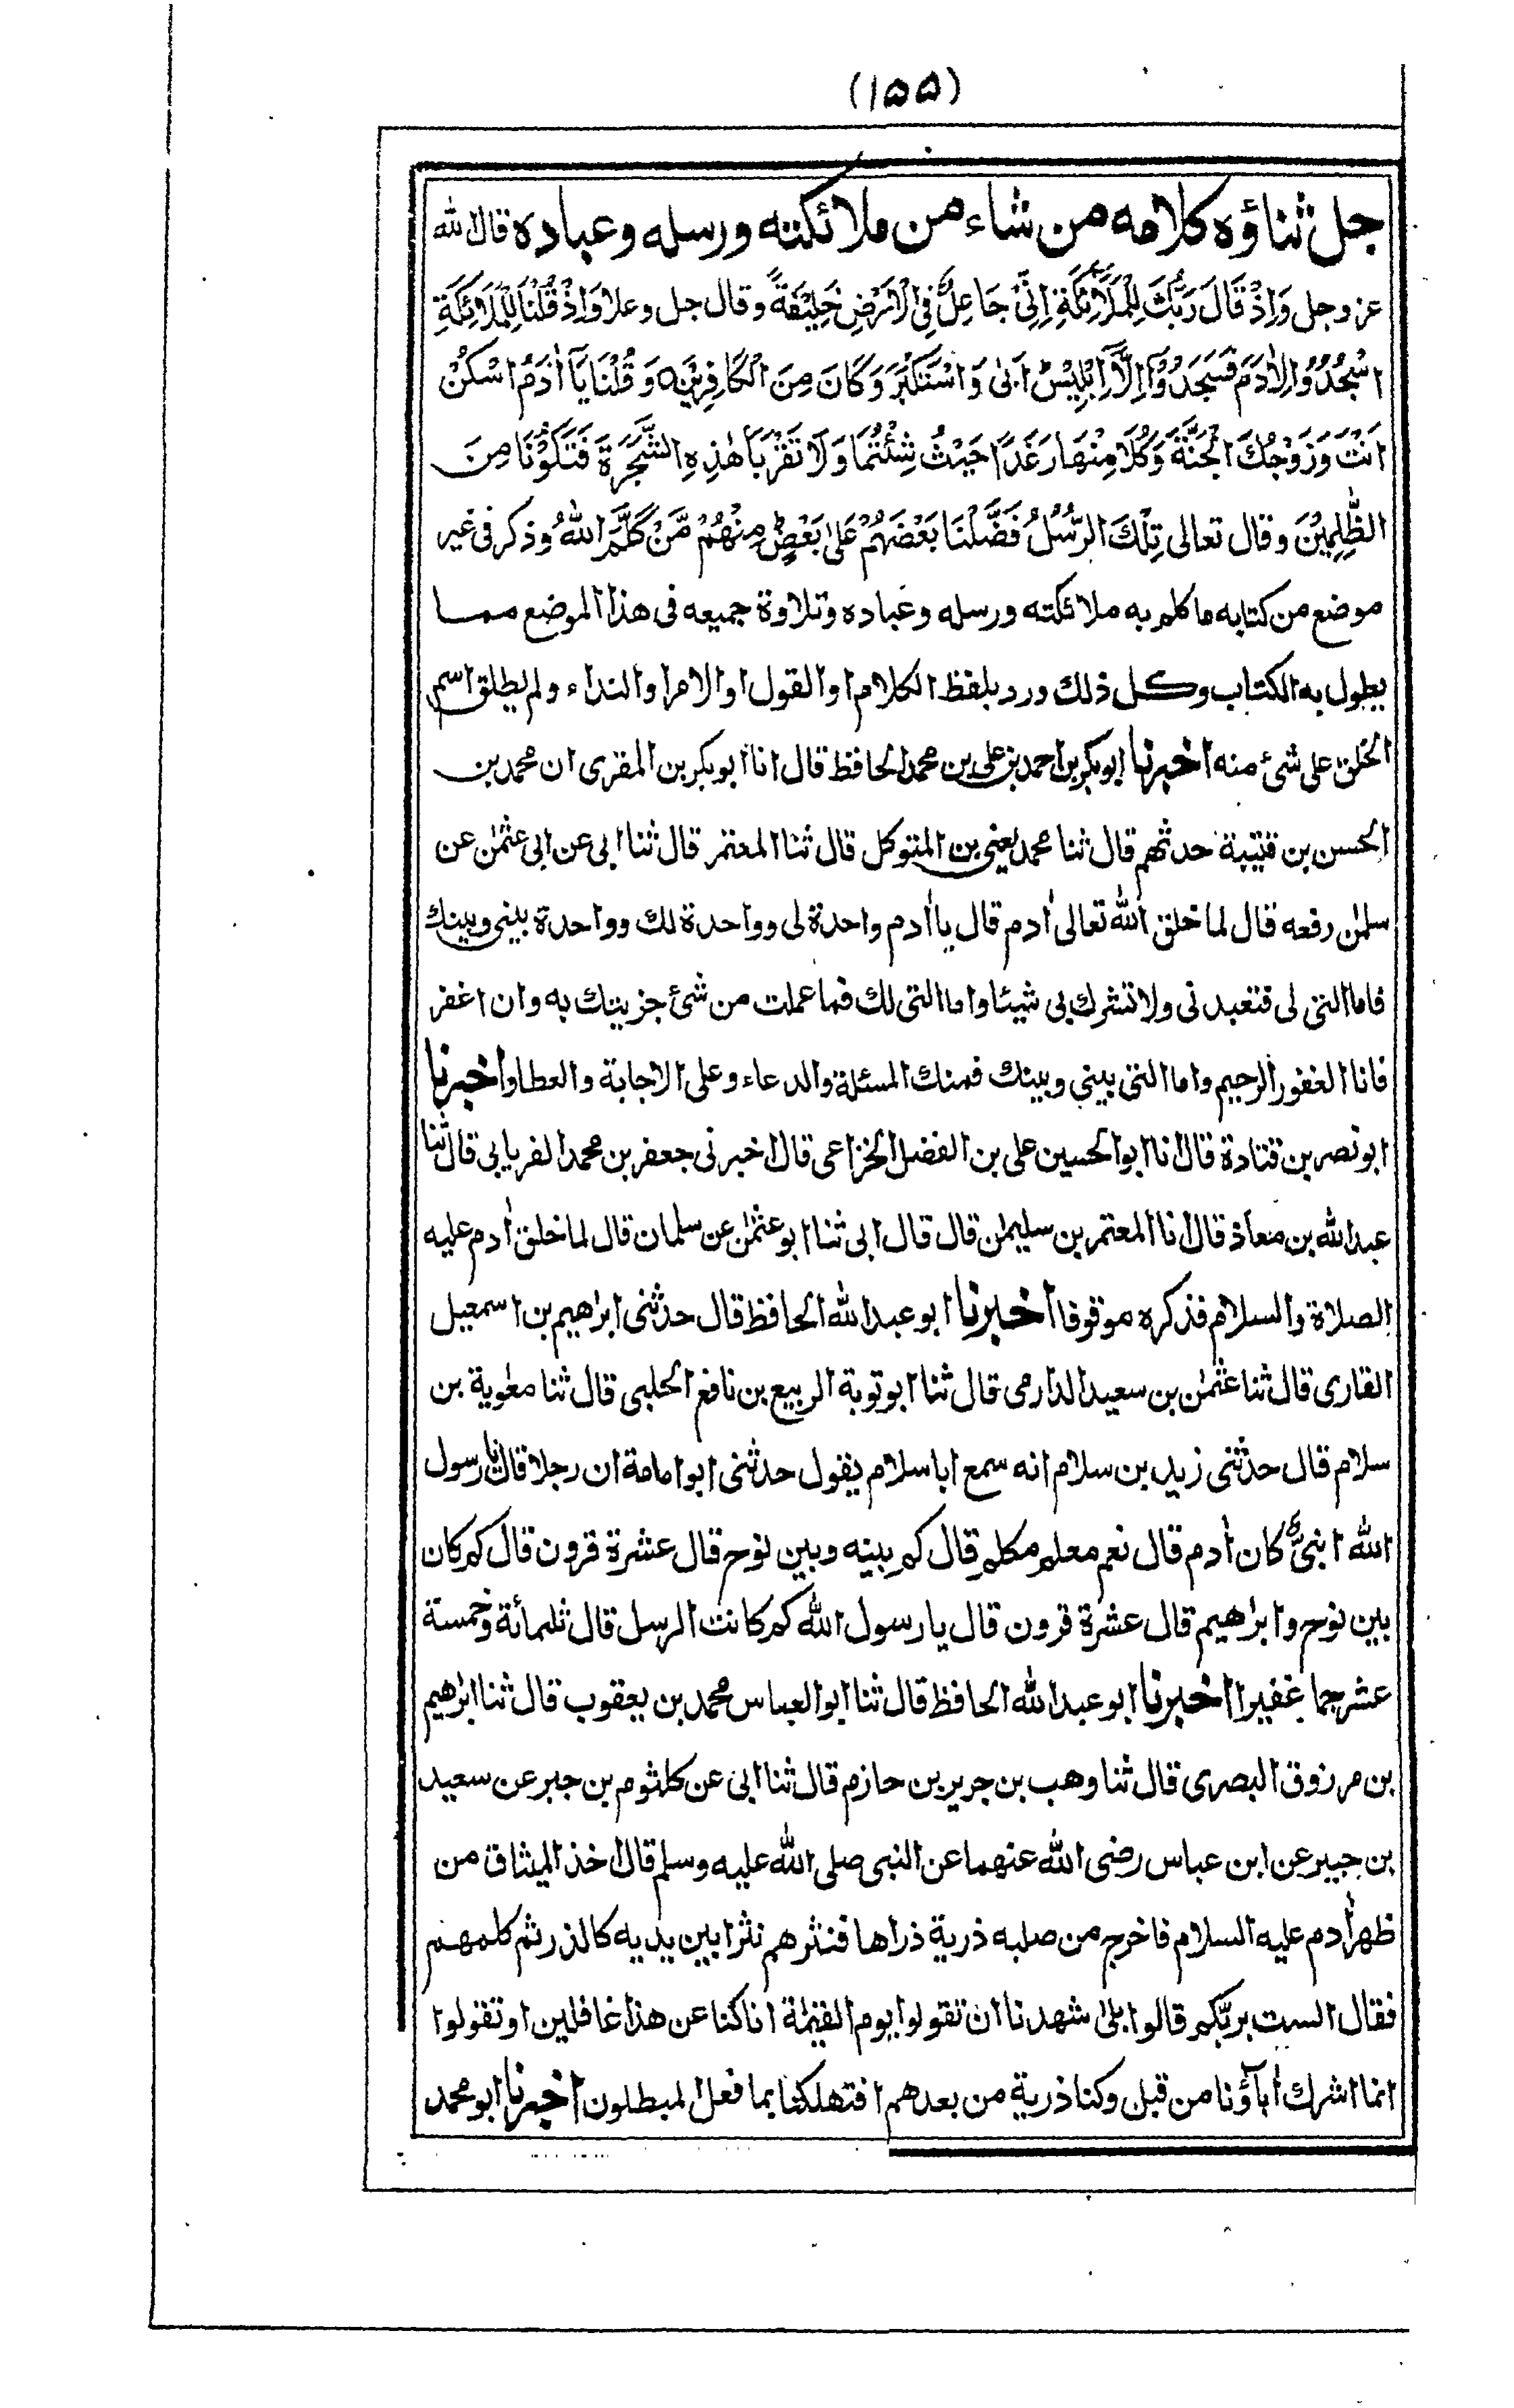 (١٥٥)
جل ثناؤه كلامه من شاء من ملائكته ورسله وعباده قال الله
عز وجل وَاِذْ قَالَ رَبُّكَ لِلْمَلَآئِكَةِ اِنِّيْ جَاعِلٌ فِي الْاَرْضِ خَلِيْفَةً وقال جل وعلا وَاِذْ قُلْنَا لِلْمَلَائِكَةِ
اسْجُدُوْا لِاٰدَمَ فَسَجَدُوْٓا اِلَّآ اِبْلِيْسَ اَبٰى وَاسْتَكْبَرَ وَكَانَ مِنَ الْكَافِرِيْنَ ٥ وَقُلْنَا يَآ اٰدَمُ اسْكُنْ
اَنْتَ وَزَوْجُكَ الْجَنَّةَ وَكُلَا مِنْهَا رَغَدًا حَيْثُ شِئْتُمَا وَلَا تَقْرَبَا هٰذِهِ الشَّجَرَةَ فَتَكُوْنَا مِنَ
الظّٰلِمِيْنَ وقال تعالى تِلْكَ الرُّسُلُ فَضَّلْنَا بَعْضَهُمْ عَلٰى بَعْضٍ مِنْهُمْ مَّنْ كَلَّمَ اللهُ وذكر فى غير
موضع من كتابه ما كلم به ملائكته ورسله وعباده وتلاوة جميعه فى هذا الموضع مما
يطول به الكتاب وكل ذلك ورد بلفظ الكلام او القول او الامر او النداء ولم يطلق اسم
الخلق على شئ منه اخبرنا ابو بكر بن احمد بن على بن محمد الحافظ قال انا ابو بكر بن المقرى ان محمد بن
الحسن بن قتيبة حدثهم قال ثنا محمد يعنى بن المتوكل قال ثنا المعتمر قال ثنا ابى عن ابى عثمٰن عن
سلمٰن رفعه قال لما خلق الله تعالى اٰدم قال يا اٰدم واحدة لى وواحدة لك وواحدة بينى وبينك
فاما التى لى فتعبدنى ولا تشرك بى شيئا واما التى لك فما عملت من شئ جزيتك به وان اغفر
فانا الغفور الرحيم واما التى بينى وبينك فمنك المسئلة والدعاء وعلى الاجابة والعطا واخبرنا
ابو نصر بن قتادة قال انا ابو الحسين على بن الفضل الخزاعى قال اخبرنى جعفر بن محمد الفريابى قال ثنا
عبد الله بن معاذ قال انا المعتمر بن سليمٰن قال قال ابى ثنا ابو عثمٰن عن سلمان قال لما خلق اٰدم عليه
الصلاة والسلام فذكره موقوفا اخبرنا ابو عبد الله الحافظ قال حدثنى ابراهيم بن اسمعيل
القارى قال ثنا عثمٰن بن سعيد الدارمى قال ثنا ابو توبة الربيع بن نافع الحلبى قال ثنا معٰوية بن
سلام قال حدثنى زيد بن سلام انه سمع ابا سلام يقول حدثنى ابو امامة ان رجلا قال يا رسول
الله انبىٌّ كان اٰدم قال نعم معلم مكلم قال كم بينه وبين نوح قال عشرة قرون قال كم كان
بين نوح وابرٰهيم قال عشرة قرون قال يا رسول الله كم كانت الرسل قال ثلمائة وخمسة
عشر جما غفيرا اخبرنا ابو عبد الله الحافظ قال ثنا ابو العباس محمد بن يعقوب قال ثنا ابرٰهيم
بن مرزوق البصرى قال ثنا وهب بن جرير بن حازم قال ثنا ابى عن كلثوم بن جبر عن سعيد
بن جبير عن ابن عباس رضى الله عنهما عن النبى صلى الله عليه وسلم قال اخذ الميثاق من
ظهر اٰدم عليه السلام فاخرج من صلبه ذرية ذراها فنثرهم نثرا بين يديه كالذر ثم كلمهم
فقال الست بربّكم قالوا بلىٰ شهدنا ان تقولوا يوم القيٰمة انا كنا عن هذا غافلين او تقولوا
انما اشرك اٰبآؤنا من قبل وكنا ذرية من بعدهم افتهلكنا بما فعل المبطلون اخبرنا ابو محمد